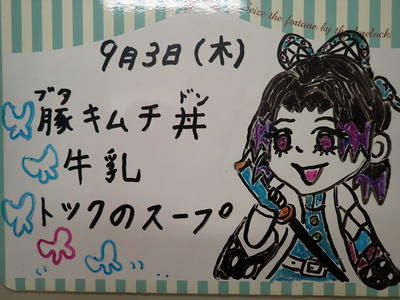 Seize the fortune by the forelock
9月3日(木)
ブタ ドン
豚キムチ丼
牛乳
トックのスープ